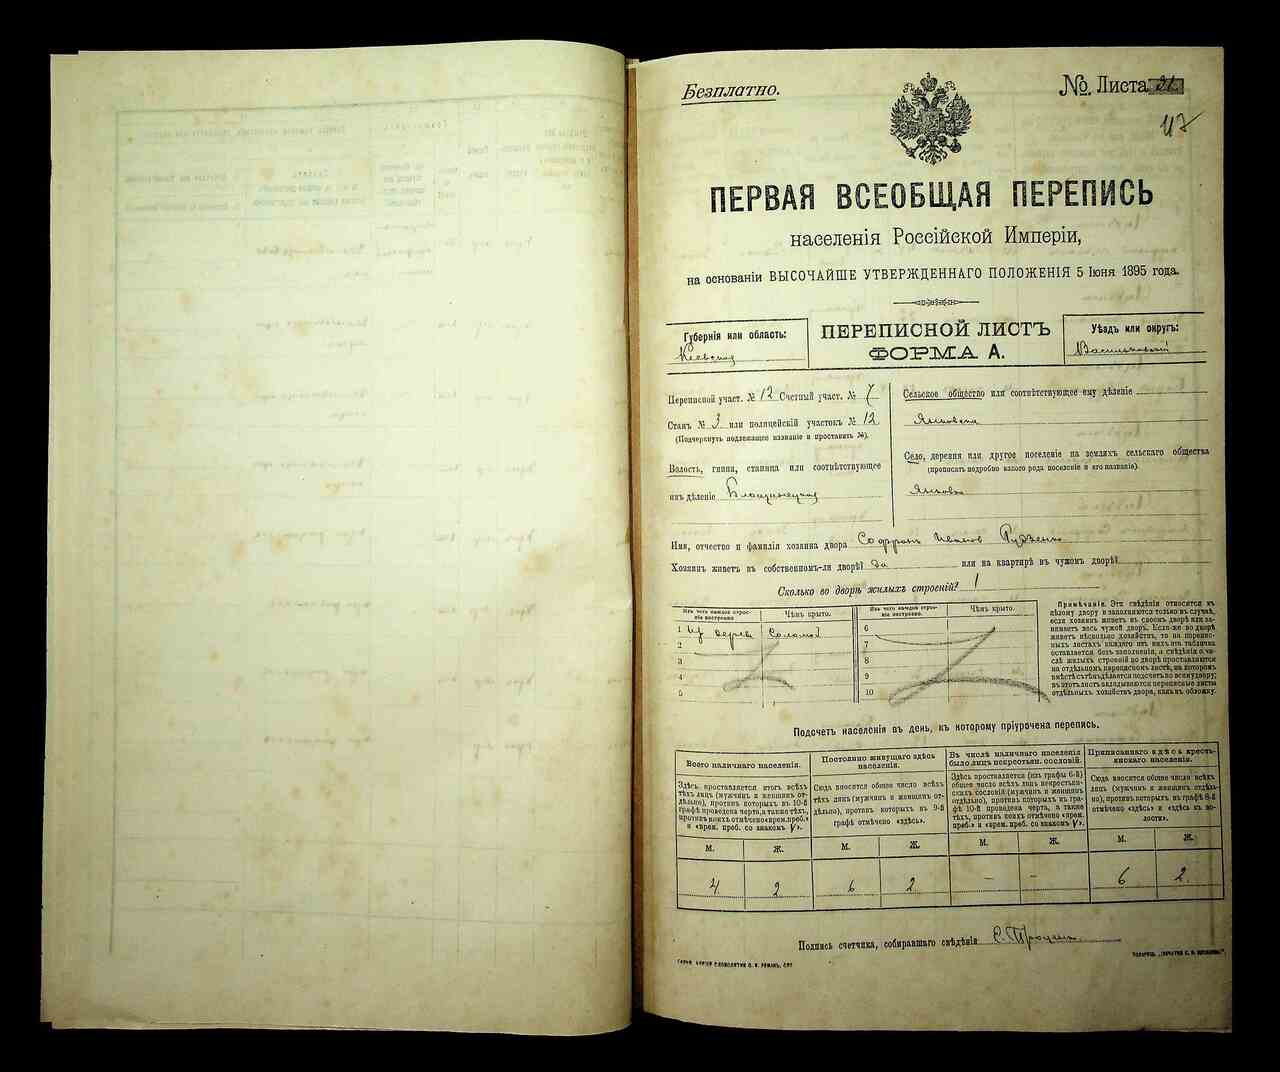 Безплатно.
№ Листа 21.
117
ПЕРВАЯ ВСЕОБЩАЯ ПЕРЕПИСЬ
населенія Россійской Имперіи,
на основаніи ВЫСОЧАЙШЕ УТВЕРЖДЕННАГО ПОЛОЖЕНІЯ 5 Іюня 1895 года.
Губернія или область:
Кіевская
ПЕРЕПИСНОЙ ЛИСТЪ
ФОРМА А.
Уѣздъ или округъ:
Васильковскій
Переписной участ. № 12 Счетный участ. № 7
Станъ № 3 или полицейскій участокъ № 12
(Подчеркнуть подлежащее названіе и проставить №).
Волость, гмина, станица или соотвѣтствующее
имъ дѣленіе Блощинецкая
Сельское общество или соотвѣтствующее ему дѣленіе
Яновка
Село, деревня или другое поселеніе на земляхъ сельскаго общества
(прописать подробно какого рода поселеніе и его названіе).
Яновка
Имя, отчество и фамилія хозяина двора Софронъ Ивановъ Руденко
Хозяинъ живетъ въ собственномъ-ли дворѣ? да или на квартирѣ въ чужомъ дворѣ?
Сколько во дворѣ жилыхъ строеній? 1
Изъ чего каждое строеніе построено
Чѣмъ крыто.
Изъ чего каждое строеніе построено
Чѣмъ крыто.
1 Из дерева Соломой
2
3
4
5
6
7
8
9
10
Примѣчаніе. Эти свѣдѣнія относятся къ
цѣлому двору и заполняются только въ случаѣ,
если хозяинъ живетъ въ своемъ дворѣ или занимаетъ
весь чужой дворъ. Если-же во дворѣ
живетъ нѣсколько хозяйствъ, то на переписныхъ
листахъ каждаго изъ нихъ эта табличка
оставляется безъ заполненія, а свѣдѣнія о числѣ
жилыхъ строеній во дворѣ проставляются
на отдѣльномъ переписномъ листѣ, на которомъ
вмѣстѣ съ тѣмъ дѣлается подсчетъ по всему двору;
въ этотъ листъ вкладываются переписные листы
отдѣльныхъ хозяйствъ двора, какъ въ обложку.
Подсчетъ населенія въ день, къ которому пріурочена перепись.
Всего наличнаго населенія.
Постоянно живущаго здѣсь населенія.
Въ числѣ наличнаго населенія было лицъ некрестьян. сословій.
Приписаннаго здѣсь крестьянскаго населенія.
Здѣсь проставляется итогъ всѣхъ
тѣхъ лицъ (мужчинъ и женщинъ отдѣльно),
противъ которыхъ въ 10-й
графѣ проведена черта, а также тѣхъ,
противъ коихъ отмѣчено «врем. преб.»
и «врем. преб. со знакомъ V».
Сюда вносится общее число всѣхъ
тѣхъ лицъ (мужчинъ и женщинъ отдѣльно),
противъ которыхъ въ 9-й
графѣ отмѣчено «здѣсь».
Здѣсь проставляется (изъ графы 6-й)
общее число всѣхъ лицъ некрестьянскихъ
сословій (мужчинъ и женщинъ
отдѣльно), противъ которыхъ въ графѣ
10-й проведена черта, а также
тѣхъ, противъ коихъ отмѣчено «врем.
преб.» и «врем. преб. со знакомъ V».
Сюда вносится общее число всѣхъ
лицъ (мужчинъ и женщинъ отдѣльно),
противъ которыхъ въ графѣ 8-й
отмѣчено «здѣсь» и «здѣсь въ волости».
М. Ж. М. Ж. М. Ж. М. Ж.
4 2 6 2 – – 6 2
Подпись счетчика, собиравшаго свѣдѣнія